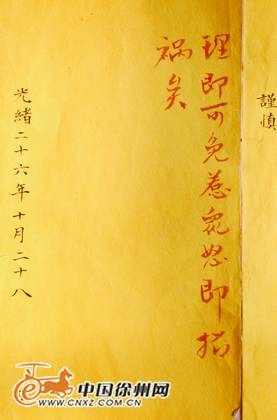 謹慎
理即可免惹众怒即招
祸矣
光緒二十六年十月二十八
中国徐州网
WWW.CNXZ.COM.CN